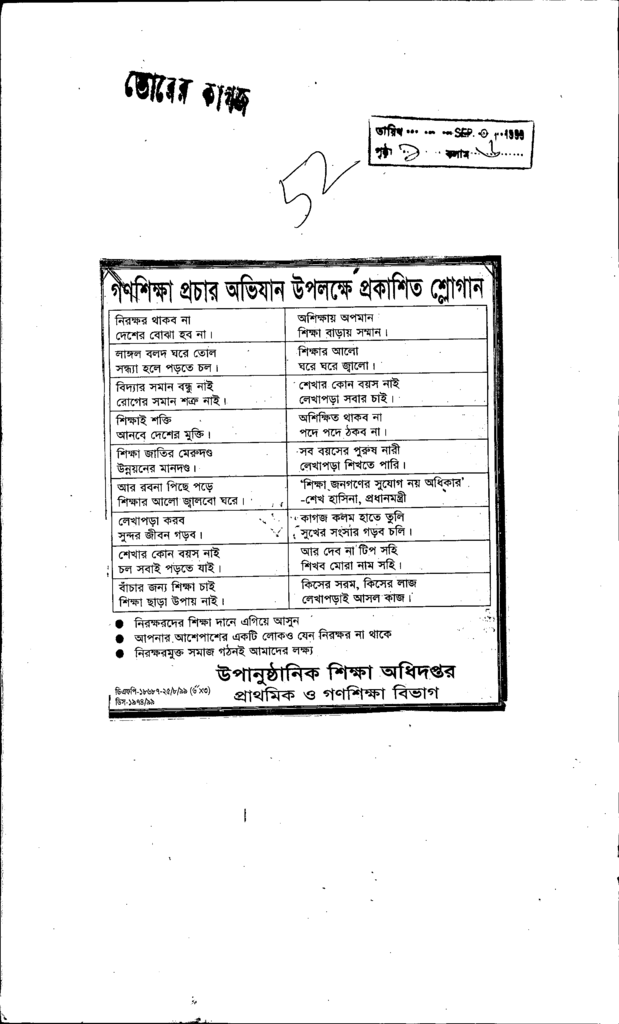 ভোরের কাগজ
তারিখ ... ... ... SEP. 0 1999
পৃষ্ঠা ... কলাম ...
52
গণশিক্ষা প্রচার অভিযান উপলক্ষে প্রকাশিত শ্লোগান
নিরক্ষর থাকব না
দেশের বোঝা হব না।
অশিক্ষায় অপমান
শিক্ষা বাড়ায় সম্মান।
লাঙ্গল বলদ ঘরে তোল
সন্ধ্যা হলে পড়তে চল।
শিক্ষার আলো
ঘরে ঘরে জ্বালো।
বিদ্যার সমান বন্ধু নাই
রোগের সমান শত্রু নাই।
শেখার কোন বয়স নাই
লেখাপড়া সবার চাই।
শিক্ষাই শক্তি
আনবে দেশের মুক্তি।
অশিক্ষিত থাকব না
পদে পদে ঠকব না।
শিক্ষা জাতির মেরুদণ্ড
উন্নয়নের মানদণ্ড।
সব বয়সের পুরুষ নারী
লেখাপড়া শিখতে পারি।
আর রবনা পিছে পড়ে
শিক্ষার আলো জ্বালবো ঘরে।
'শিক্ষা জনগণের সুযোগ নয় অধিকার'
-শেখ হাসিনা, প্রধানমন্ত্রী
লেখাপড়া করব
সুন্দর জীবন গড়ব।
কাগজ কলম হাতে তুলি
সুখের সংসার গড়ব চলি।
শেখার কোন বয়স নাই
চল সবাই পড়তে যাই।
আর দেব না টিপ সহি
শিখব মোরা নাম সহি।
বাঁচার জন্য শিক্ষা চাই
শিক্ষা ছাড়া উপায় নাই।
কিসের সরম, কিসের লাজ
লেখাপড়াই আসল কাজ।
● নিরক্ষরদের শিক্ষা দানে এগিয়ে আসুন
● আপনার আশেপাশের একটি লোকও যেন নিরক্ষর না থাকে
● নিরক্ষরমুক্ত সমাজ গঠনই আমাদের লক্ষ্য
উপানুষ্ঠানিক শিক্ষা অধিদপ্তর
প্রাথমিক ও গণশিক্ষা বিভাগ
ডিএফপি-১৮৬৮৭-২৫/৮/৯৯ (৬"x৩)
ডিস-১৯৭৪/৯৯